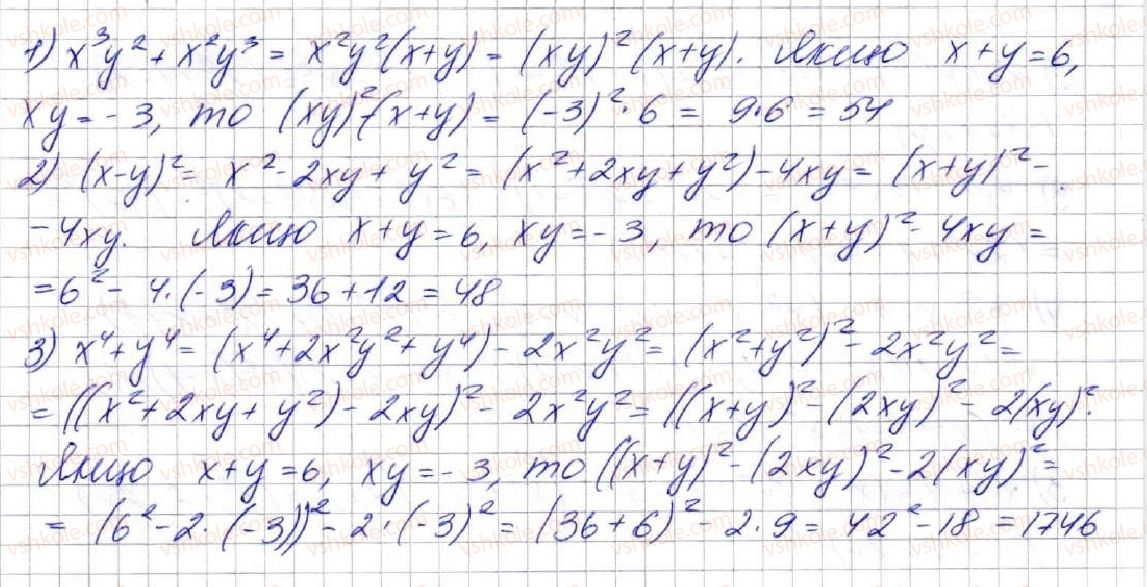 1) x³y² + x²y³ = x²y²(x+y) = (xy)²(x+y). Якщо x+y=6,
xy = -3, то (xy)²(x+y) = (-3)²·6 = 9·6 = 54
2) (x-y)² = x² - 2xy + y² = (x²+2xy+y²) - 4xy = (x+y)² -
- 4xy. Якщо x+y=6, xy=-3, то (x+y)² - 4xy =
= 6² - 4·(-3) = 36+12 = 48
3) x⁴+y⁴ = (x⁴+2x²y²+y⁴) - 2x²y² = (x²+y²)² - 2x²y² =
= ((x²+2xy+y²) - 2xy)² - 2x²y² = ((x+y)² - (2xy)² - 2(xy)².
Якщо x+y=6, xy=-3, то ((x+y)² - (2xy)² - 2(xy)² =
= (6² - 2·(-3))² - 2·(-3)² = (36+6)² - 2·9 = 42² - 18 = 1746
vshkole.com